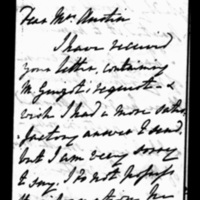 Dear Mrs. Austin
I have received
your letter, containing
M. Guizot's request - &
wish I had a more satis-
factory answer I send,
but I am very sorry
to say, I do not possess